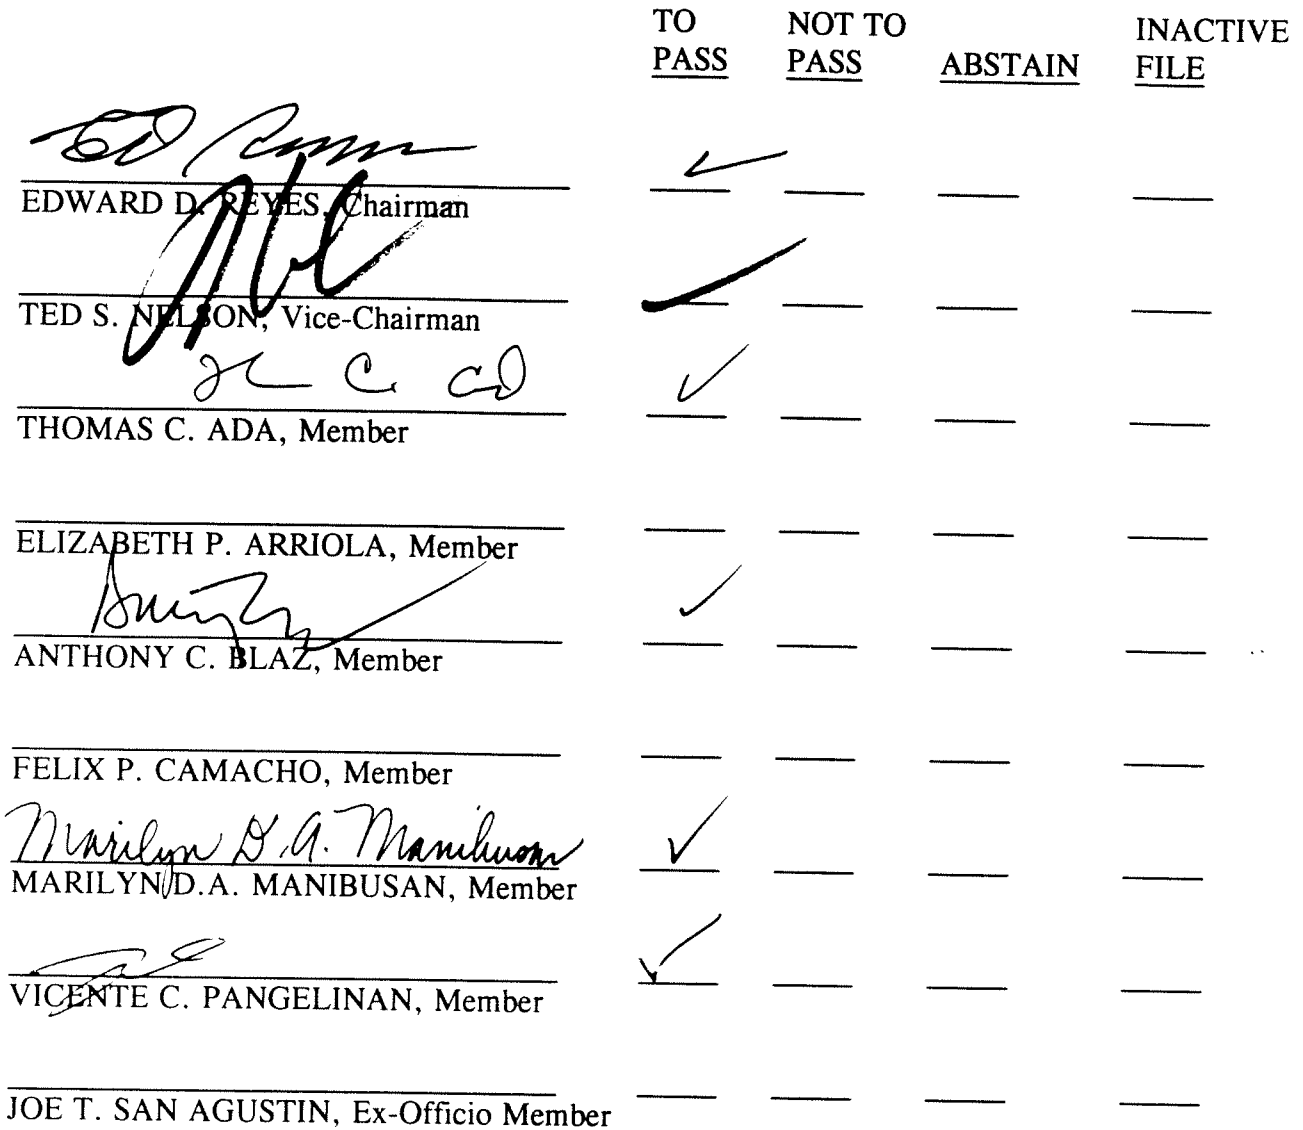 TO PASS NOT TO PASS ABSTAIN INACTIVE FILE
EDWARD D. REYES, Chairman
TED S. NELSON, Vice-Chairman
THOMAS C. ADA, Member
ELIZABETH P. ARRIOLA, Member
ANTHONY C. BLAZ, Member
FELIX P. CAMACHO, Member
Marilyn D.A. Manibusan
MARILYN D.A. MANIBUSAN, Member
VICENTE C. PANGELINAN, Member
JOE T. SAN AGUSTIN, Ex-Officio Member